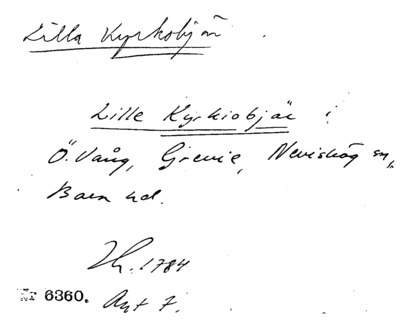 Lilla Kyrkobjär
Lille Kyrkiobjär i
Ö. Vång, Grevie, Nevishög sn,
Bara hd.
Th. 1784
Nr 6360. Akt 7.